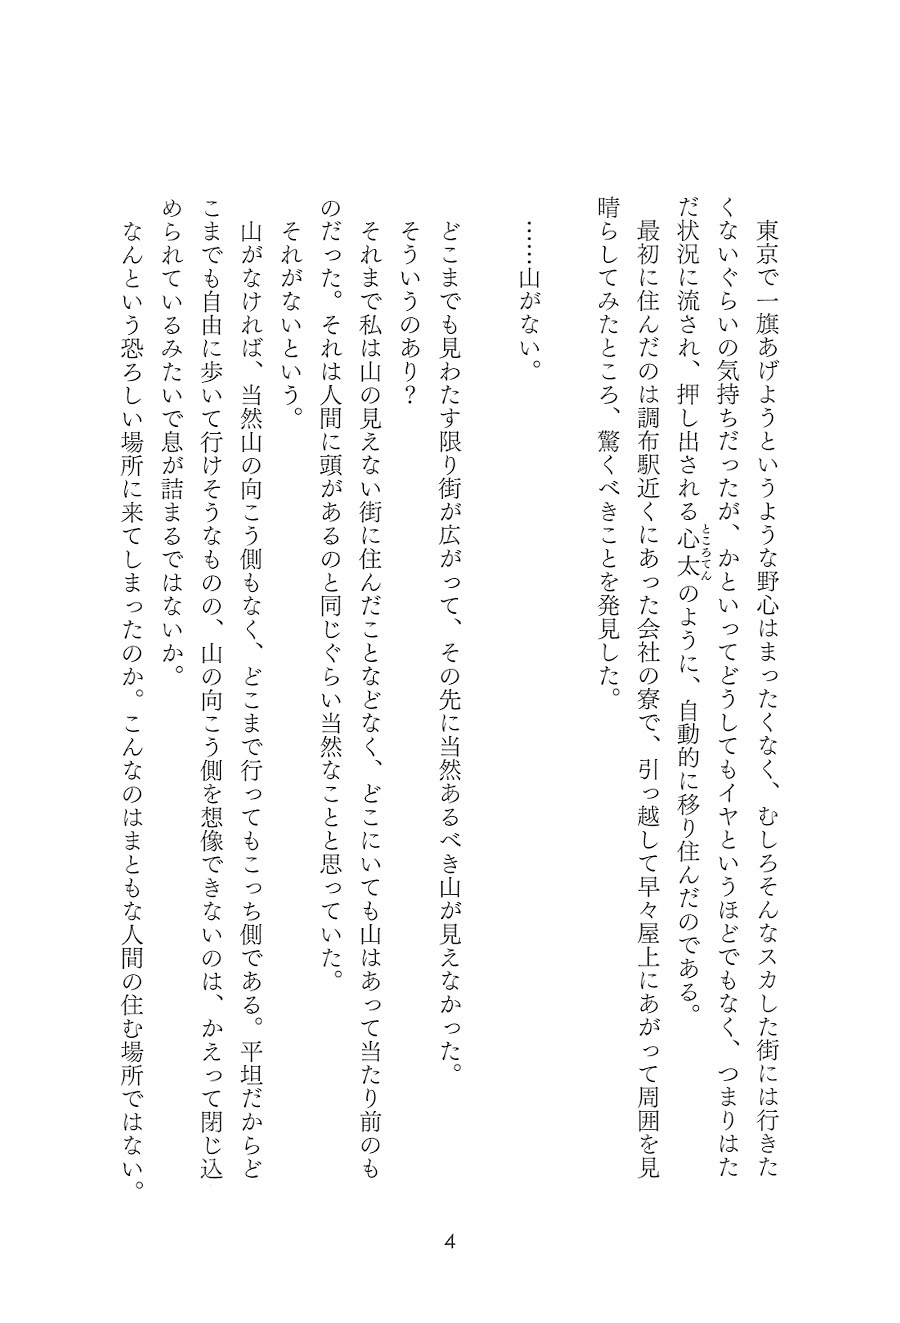 東京で一旗あげようというような野心はまったくなく、むしろそんなスカした街には行きた
くないぐらいの気持ちだったが、かといってどうしてもイヤというほどでもなく、つまりはた
だ状況に流され、押し出される心太のように、自動的に移り住んだのである。
ところてん
最初に住んだのは調布駅近くにあった会社の寮で、引っ越して早々屋上にあがって周囲を見
晴らしてみたところ、驚くべきことを発見した。
……山がない。
どこまでも見わたす限り街が広がって、その先に当然あるべき山が見えなかった。
そういうのあり？
それまで私は山の見えない街に住んだことなどなく、どこにいても山はあって当たり前のも
のだった。それは人間に頭があるのと同じぐらい当然なことと思っていた。
それがないという。
山がなければ、当然山の向こう側もなく、どこまで行ってもこっち側である。平坦だからど
こまでも自由に歩いて行けそうなものの、山の向こう側を想像できないのは、かえって閉じ込
められているみたいで息が詰まるではないか。
なんという恐ろしい場所に来てしまったのか。こんなのはまともな人間の住む場所ではない。
4